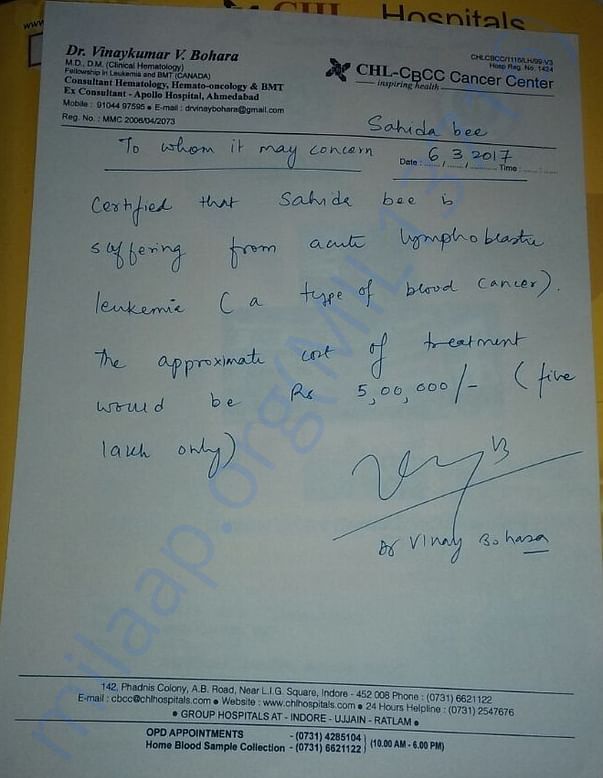 www
CHL Hospitals
Dr. Vinaykumar V. Bohara
M.D., D.M. (Clinical Hematology)
Fellowship in Leukemia and BMT (CANADA)
Consultant Hematology, Hemato-oncology & BMT
Ex Consultant - Apollo Hospital, Ahmedabad
Mobile : 91044 97595 • E-mail : drvinaybohara@gmail.com
Reg. No. : MMC 2006/04/2073
CHLCBCC/1115/LH/99-V3
Hosp Reg. No. 1424
CHL-CBCC Cancer Center
inspiring health
Sahida bee
To whom it may concern
Date : 6/3/2017 Time :
Certified that Sahida bee is
suffering from acute lymphoblastic
leukemia ( a type of blood cancer).
The approximate cost of treatment
would be Rs 5,00,000/- ( five
lakh only)
Dr Vinay Bohara
milaap.org
142, Phadnis Colony, A.B. Road, Near L.I.G. Square, Indore - 452 008 Phone : (0731) 6621122
E-mail : cbcc@chlhospitals.com • Website : www.chlhospitals.com • 24 Hours Helpline : (0731) 2547676
• GROUP HOSPITALS AT - INDORE - UJJAIN - RATLAM •
OPD APPOINTMENTS - (0731) 4285104
Home Blood Sample Collection - (0731) 6621122 (10.00 AM - 6.00 PM)